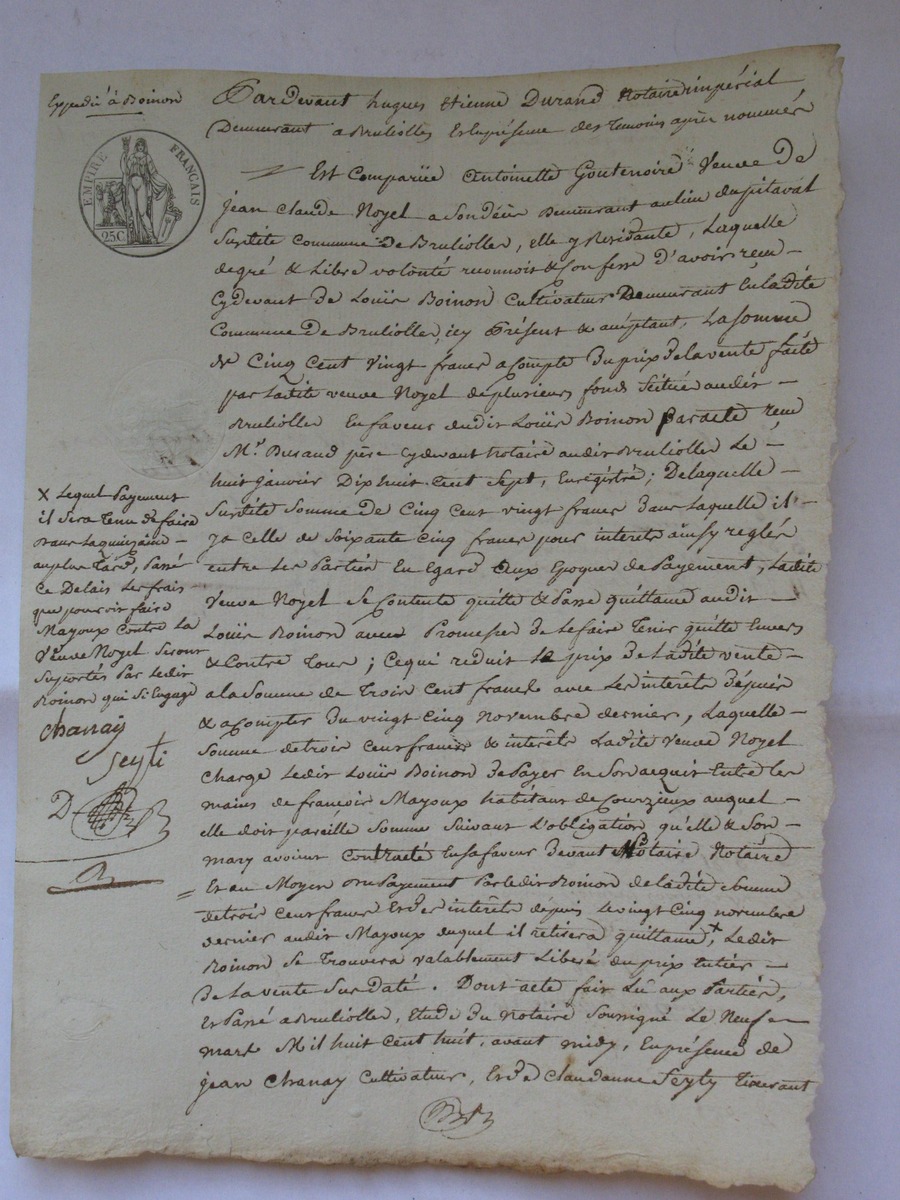 Expédié à Boinon
EMPIRE FRANÇAIS
25C.
Pardevant hugues Etienne Durand Notaire impérial
Demeurant a Bruliolles Et Enprésence des temoins après nommés
Est Comparüe Antoinette Goutenoire Veuve de
jean Claude Noyel a Son décès Demeurant au lieu du pitaval
Susdite Commune De Brulioller, elle y Résidante, Laquelle
de gré & Libre volonté reconnoit & Confesse D'avoir reçu –
Cydevant De Loüis Boinon Cultivateur Demeurant En ladite
Commune De Brulioller, icy Présent & acceptant, La Somme
de Cinq Cent Vingt francs a Compte Du prix De la vente faite
par Ladite veuve Noyel de plusieurs fonds Scitués audit –
Brulioller En faveur dudit Loüis Boinon par acte reçu
Mr. Durand père Cydevant Notaire audit Brulioller Le –
huit janvier Dix huit Cent Sept, Enrégistré; De laquelle –
Susdite Somme De Cinq Cent vingt francs Dans Laquelle il –
ya celle de Soixante Cinq francs pour interets ainsy reglés
entre Les Parties En Egard aux Epoques de Payement, Ladite
Veuve Noyel Se Contente quitte & Passe quittance audit –
Loüis Boinon avec Promesse De le faire Tenir quitte Envers
& Contre Tous; Ce qui reduit Le prix De Ladite vente –
a la Somme de Trois Cent francs avec Les interets depuis
& a Compter Du vingt Cinq Novembre dernier, Laquelle –
Somme de trois Cent francs & interêts Ladite Veuve Noyel
Charge Ledit Loüis Boinon De Payer En Son acquit Entre les
mains de françois Mayoux habitant de Courzieux auquel –
elle doit pareille Somme Suivant L'obligation qu'elle & Son –
mary avoient Contracté En Sa faveur Devant Notaire
= Et au Moyen du Payement Par ledit Boinon de Ladite Somme
de trois Cent francs Et des interêts depuis Le vingt Cinq novembre
dernier audit Mayoux duquel il retirera quittance, + Ledit
Boinon Se Trouvera valablement Libéré du prix Entier –
De La vente Sus Daté. Dont acte fait Lû aux Parties,
Et Passé a Brulioller, Etude du Notaire Soussigné Le Neuf
mars Mil huit Cent huit, avant midy, En présence de
jean Chanay Cultivateur, Et de Claude Seyty Tisserant
X Lequel Payement
il Sera Tenu de faire
Dans La quinzaine –
au plus Tard, Passé
Ce Delais Les frais
que pourroit faire
Mayoux Contre La
Veuve Noyel Seront
Suportés Par Ledit
Boinon qui S'y Engage
Chanay
Seyti
D